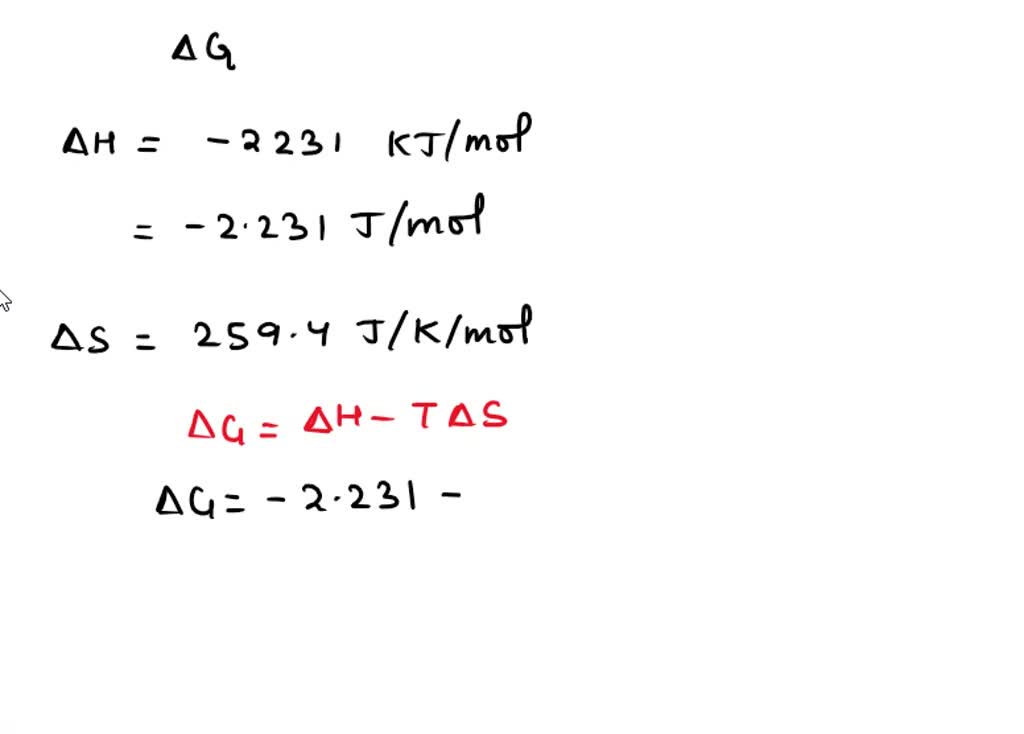 ΔG
ΔH = -2231 KJ/mol
= -2.231 J/mol
ΔS = 259.4 J/K/mol
ΔG = ΔH - TΔS
ΔG = -2.231 -